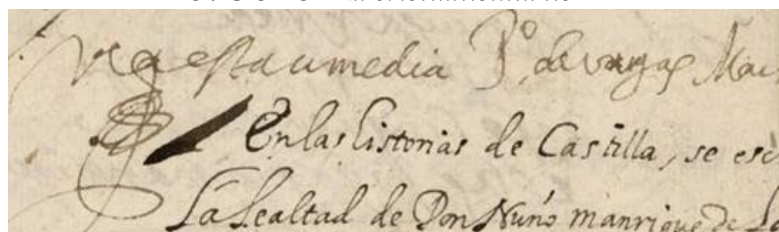 esta comedia P.º de vargas Mac
En las historias de Castilla, se esc
La Lealtad de Don Nuño manrique de L